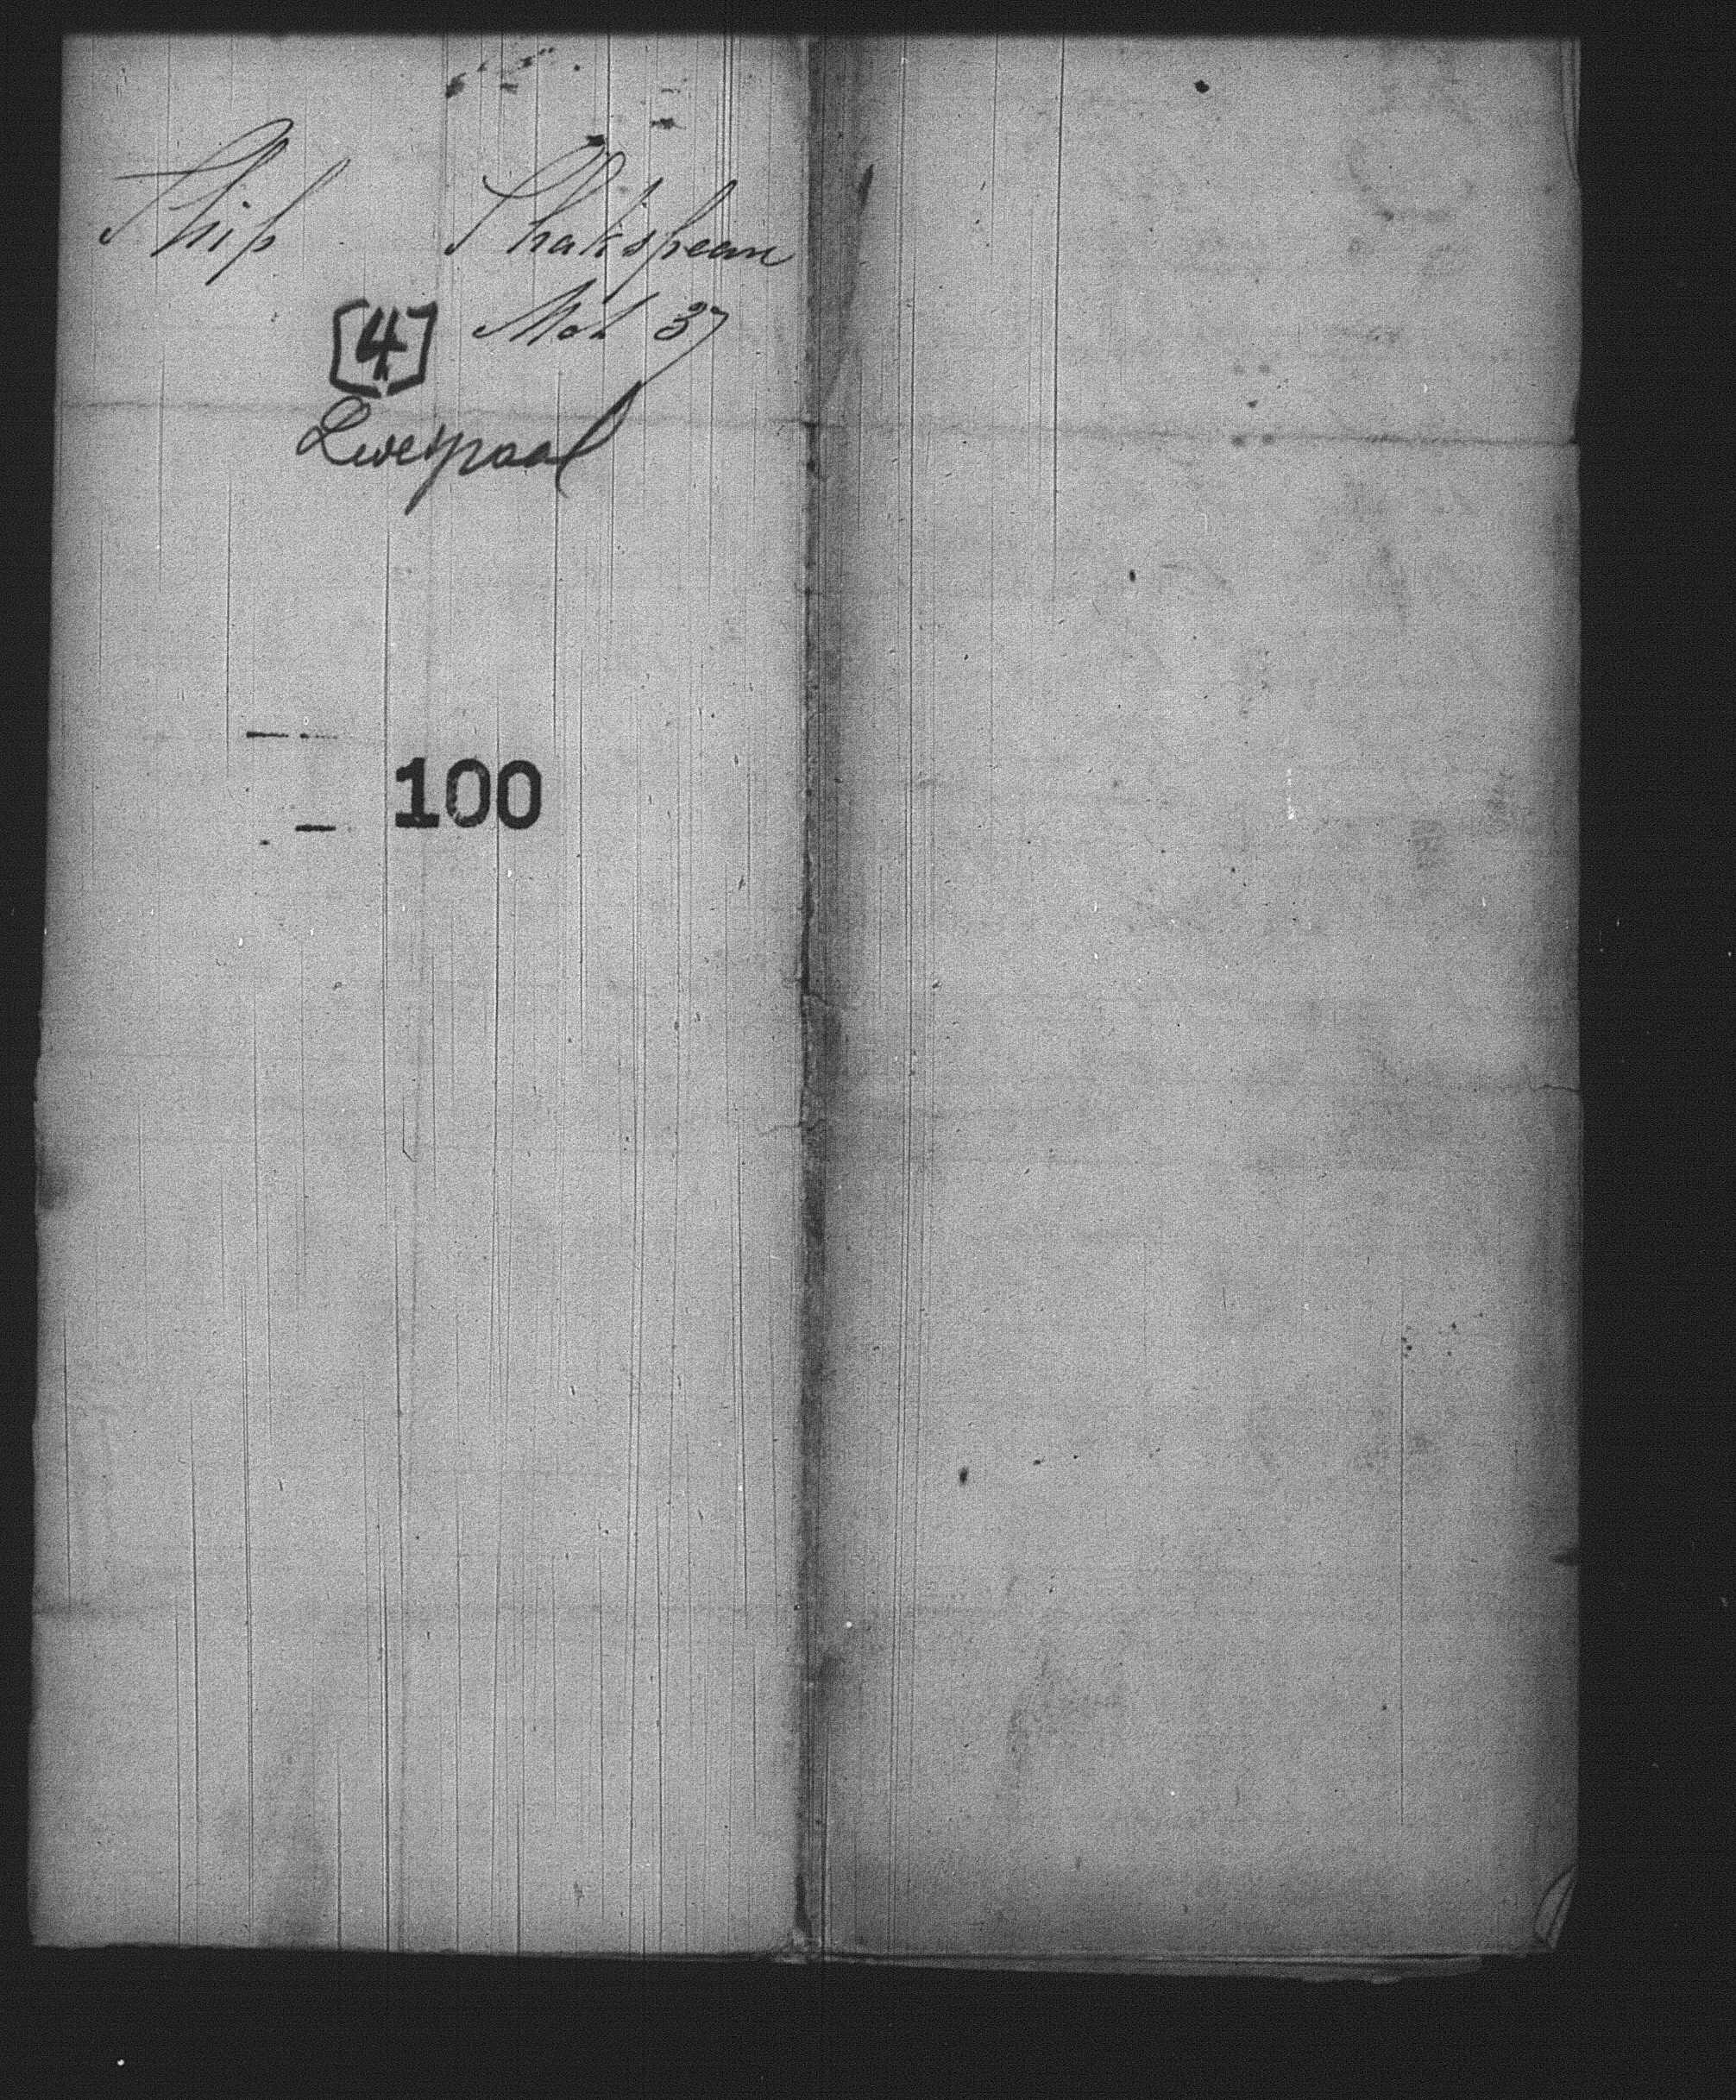 Ship Shakspeare
[4] Mch 37
Liverpool
100